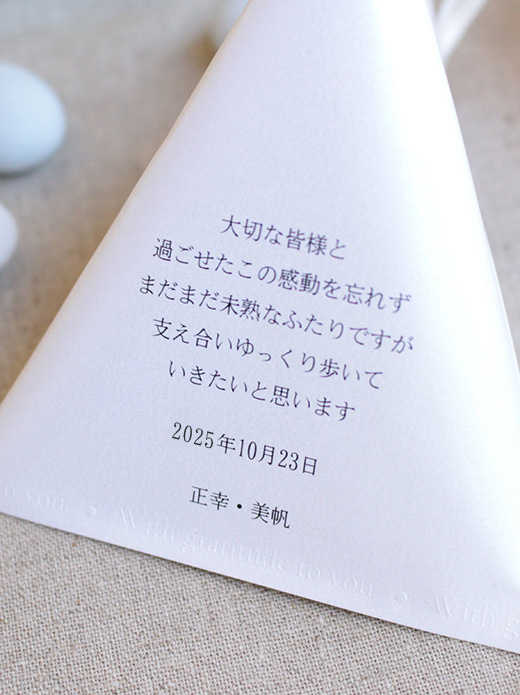 大切な皆様と
過ごせたこの感動を忘れず
まだまだ未熟なふたりですが
支え合いゆっくり歩いて
いきたいと思います
2025年10月23日
正幸・美帆
to you With gratitude to you With g